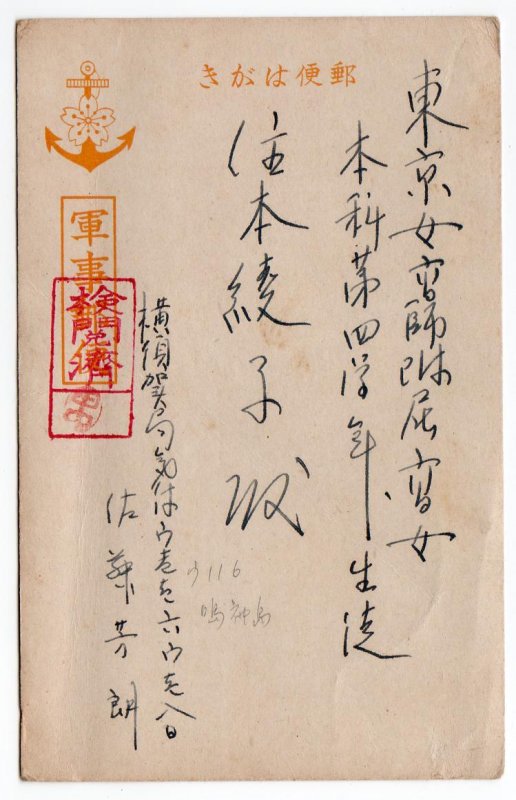 郵便はがき
東京女高師附属高女
本科第四学年生徒
住本綾子殿
ウ116
鳴神島
横須賀局気付ウ壱壱六ウ壱八
佐藤芳朗
軍事
検閲済